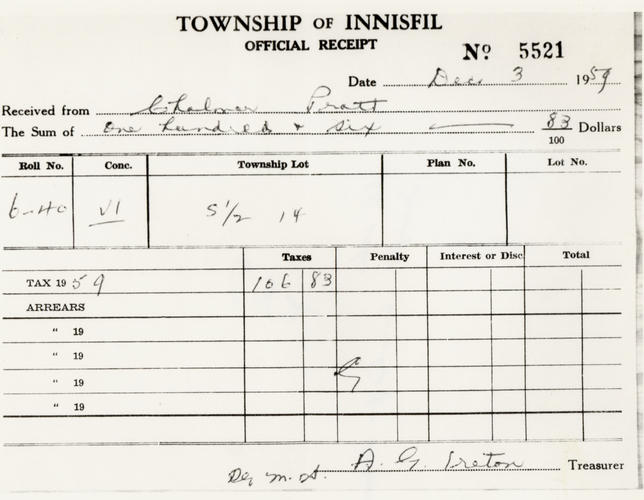 TOWNSHIP OF INNISFIL
OFFICIAL RECEIPT
No 5521
Date Dec. 3 1959
Received from Chalmer Pratt
The Sum of One hundred & six 83/100 Dollars
Roll No. Conc. Township Lot Plan No. Lot No.
6-40 VI S 1/2 14
Taxes Penalty Interest or Disc. Total
TAX 1959 106 83
ARREARS
" 19
" 19
" 19
" 19
A. G. Ireton Treasurer